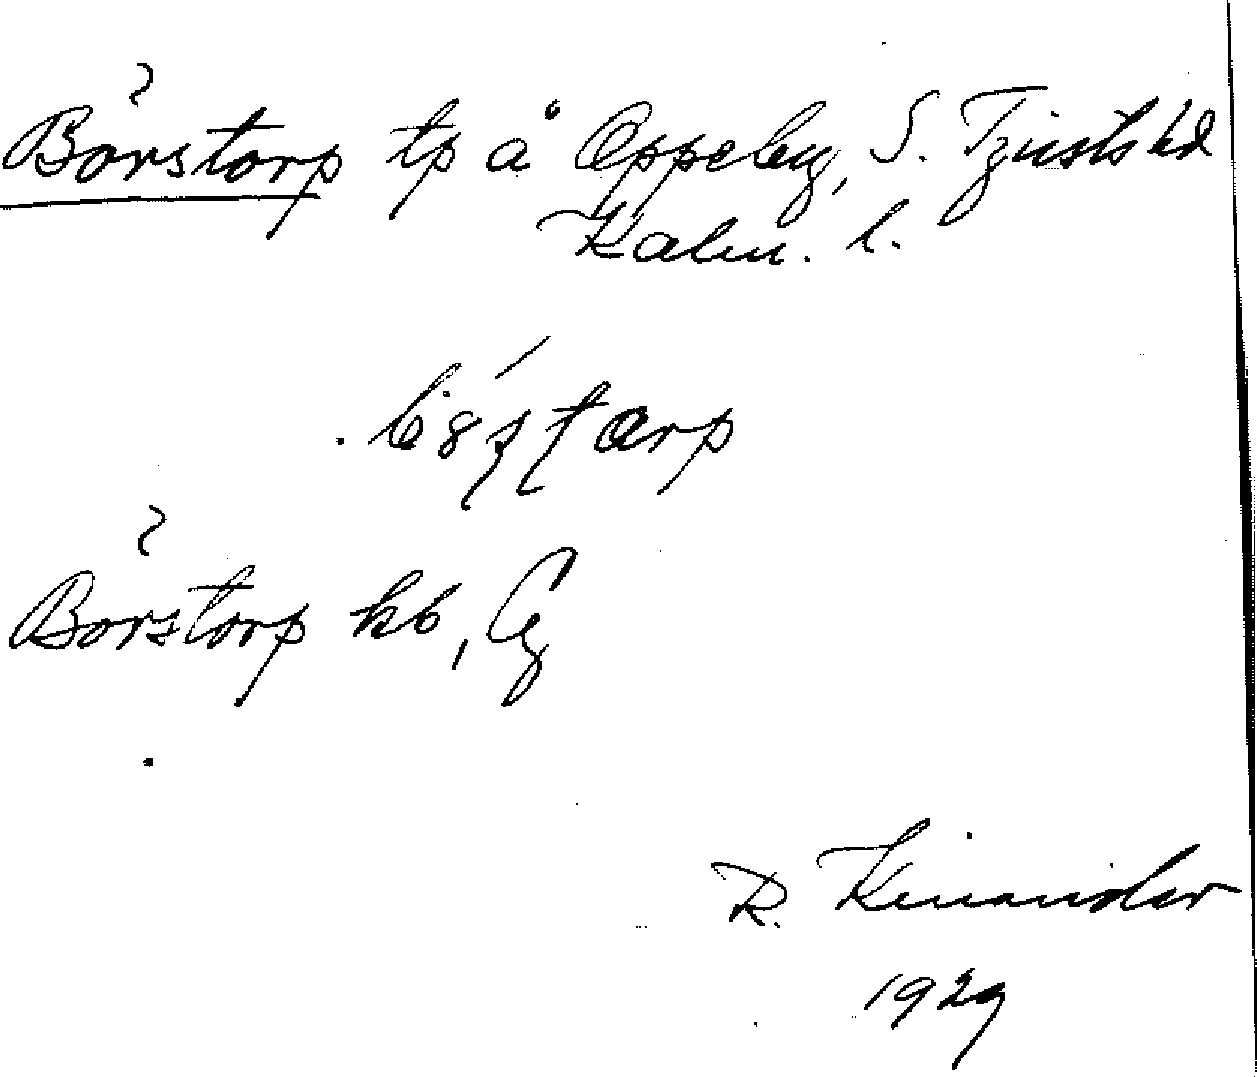 Börstorp tp å Oppeby, S. Tjusts hd
Kalm. l.
Börstorp kb,
R. Kinander
1929